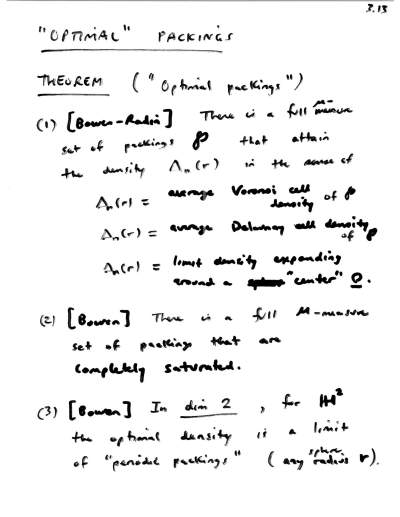 3.13
"OPTIMAL" PACKINGS
THEOREM ("Optimal packings")
(1) [Bowen-Radin] There is a full μ-measure
set of packings P that attain
the density Δn(r) in the sense of
Δn(r) = average Voronoi cell
density of P
Δn(r) = average Delaunay cell density
of P
Δn(r) = limit density expanding
around a "center" O.
(2) [Bowen] There is a full μ-measure
set of packings that are
completely saturated.
(3) [Bowen] In dim 2, for H²
the optimal density is a limit
of "periodic packings" (any sphere radius r).